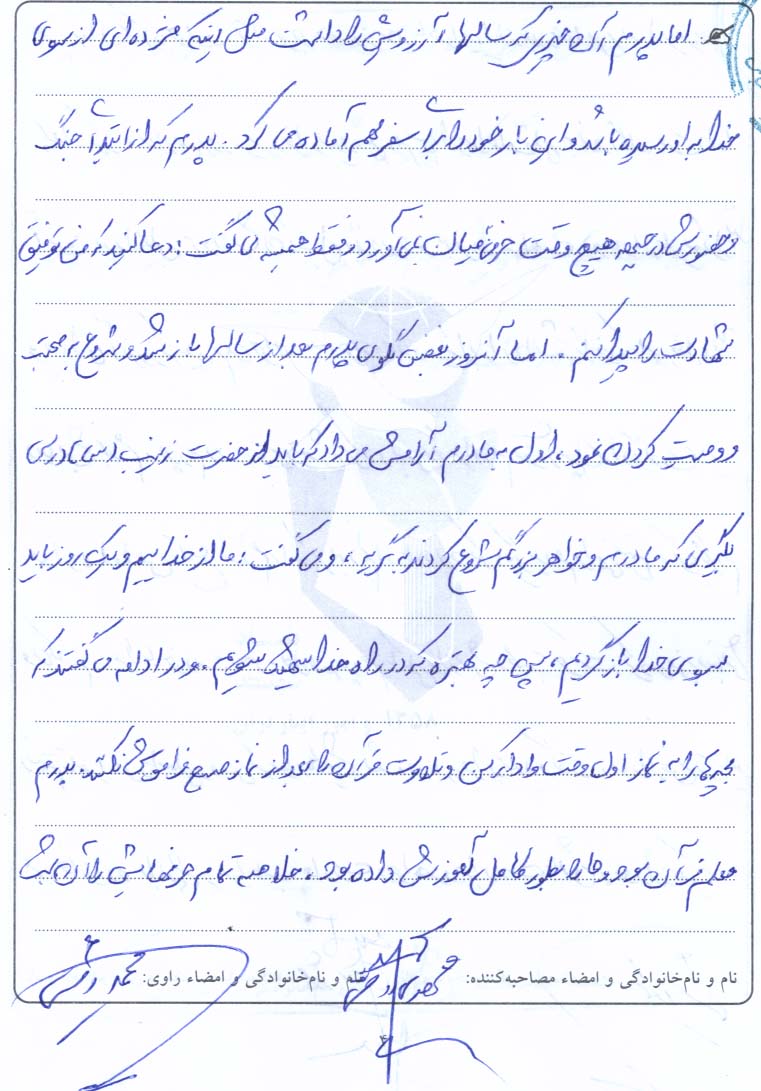 اما پدرم آن چیزی که سالها آرزوش را داشت مثل اینکه مژده ای از سوی
خدا به او رسیده باشد و این بار خود را برای سفر مهم آماده می کرد. پدرم که از ابتدای جنگ
و حضورش در جبهه هیچ وقت حرفی میان نمی آورد و فقط همیشه می گفت: دعا کنید که من توفیق
شهادت را پیدا کنم. اما آنروز بغض گلوی پدرم بعد از سالها باز شد و شروع به صحبت
و وصیت کردن نمود، اول به مادرم آرامش می داد که باید از حضرت زینب (س) درس
بگیری که مادرم و خواهر بزرگم شروع کردند به گریه، و می گفت: ما از خداییم و یک روز باید
بسوی خدا باز گردیم، پس چه بهتره که در راه خدا شهید بشویم. و در ادامه می گفتند که
بچه ها را به نماز اول وقت وادار کن و تلاوت قرآن را بعد از نماز صبح فراموش نکنند. پدرم
معلم قرآن بود و ما را بطور کامل آموزش داده بود. خلاصه تمام حرفهایش را آن شب
نام و نام‌خانوادگی و امضاء مصاحبه‌کننده: نام و نام‌خانوادگی و امضاء راوی: محمد
۴